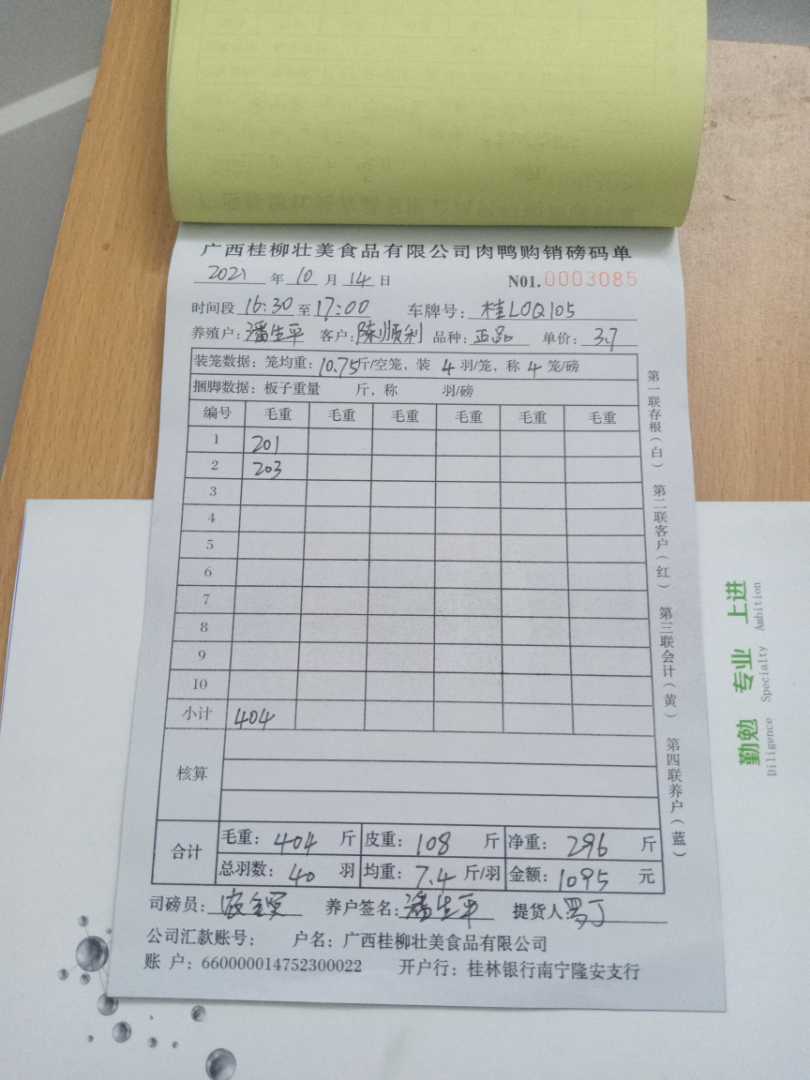 广西桂柳壮美食品有限公司肉鸭购销磅码单
2021年10月14日 N01.0003085
时间段 16:30至17:00 车牌号：桂L0Q105
养殖户：潘生平 客户：陈顺利 品种：正品 单价：3.7
装笼数据：笼均重：10.75斤/空笼，装4羽/笼，称4笼/磅
捆脚数据：板子重量 斤，称 羽/磅
编号 毛重 毛重 毛重 毛重 毛重 毛重
1 201
2 203
3
4
5
6
7
8
9
10
小计 404
核算
合计 毛重：404斤 皮重：108斤 净重：296斤
总羽数：40羽 均重：7.4斤/羽 金额：1095元
司磅员： 养户签名：潘生平 提货人：
公司汇款账号： 户名：广西桂柳壮美食品有限公司
账 户：660000014752300022 开户行：桂林银行南宁隆安支行
第一联存根（白） 第二联客户（红） 第三联会计（黄） 第四联养户（蓝）
勤勉 专业 上进
Diligence Specialty Ambition